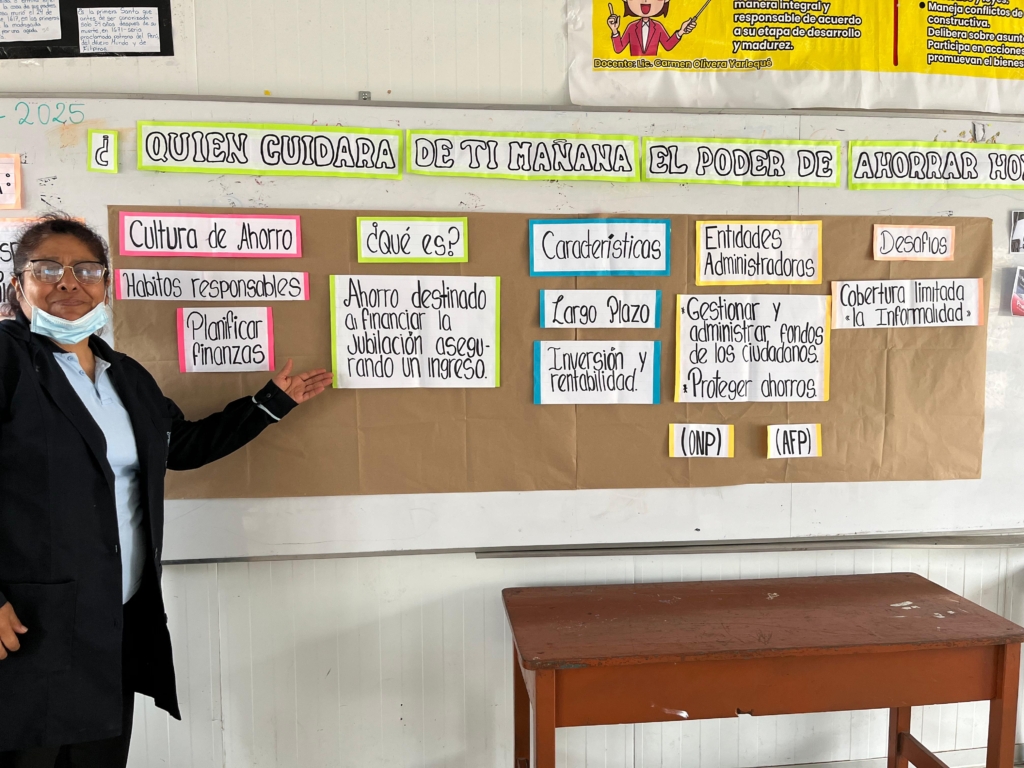 su muerte, en 1671 siendo
proclamada patrona del Perú,
del Nuevo Mundo y de
Filipinas.
manera integral y
responsable de acuerdo
a su etapa de desarrollo
y madurez.
Docente: Lic. Carmen Olivera Yarlequé
Maneja conflictos de
constructiva.
Delibera sobre asunt
Participa en acciones
promuevan el bienes
- 2025
¿ QUIEN CUIDARA DE TI MAÑANA EL PODER DE AHORRAR HO
Cultura de Ahorro
Habitos responsables
Planificar
finanzas
¿Qué es?
Ahorro destinado
a financiar la
Jubilación asegu-
rando un ingreso.
Caracteristicas
Largo Plazo
Inversión y
rentabilidad.
Entidades
Administradoras
* Gestionar y
administrar fondos
de los ciudadanos.
* Proteger ahorros.
(ONP) (AFP)
Desafios
Cobertura limitada
"la Informalidad"